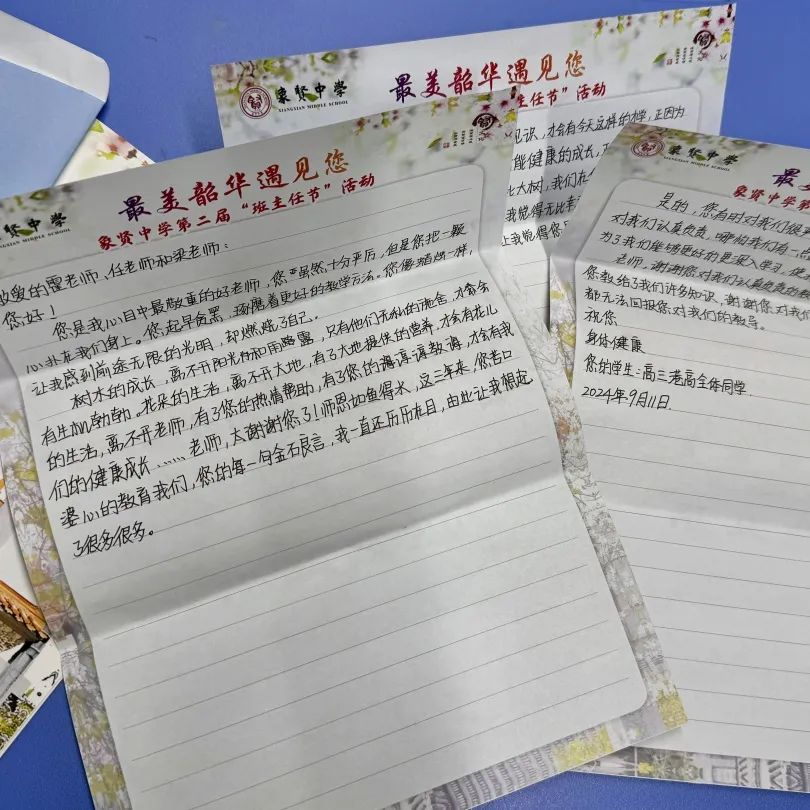 象贤中学
XIANGXIAN MIDDLE SCHOOL
最美韶华遇见您
主任节”活动
见识,才会有今天这样的才学,正因为
能健康的成长,
比大树,我们在
我觉得无比幸
让我觉得您
贤中学
XIANGXIAN MIDDLE SCHOOL
最美韶华遇见您
象贤中学第二届“班主任节”活动
敬爱的覃老师、任老师和梁老师:
您好!
您是我心目中最敬重的好老师,您严虽然十分严厉,但是您把一颗
心扑在我们身上。您起早贪黑,琢磨着更好的教学方法。您像蜡烛一样,
让我感到前途无限的光明,却燃烧了自己。
树木的成长,离不开阳光和雨露,只有他们无私的施舍,才会会
有生机勃勃。花朵的生活,离不开大地,有了大地提供的营养,才会有花儿
的生活,离不开老师,有了您的热情帮助,有了您的谆谆教诲,才会有我
们的健康成长……老师,太谢谢您了!师恩如鱼得水,这三年来,您苦口
婆心的教育我们,您的每一句金石良言,我一直还历历在目,由此让我想起
了很多很多。
象贤中学
XIANGXIAN MIDDLE SCHOOL
最
象贤中学第
是的,您有时对我们很
对我们认真负责,哪怕我们有一点
为了我们能够更好的更深入学习,使
老师,谢谢您对我们认真负责的教
您教给了我们许多知识,谢谢您对我们
都无法回报您对我们的教导。
祝您
身体健康
您的学生:高三老高全体同学
2024年9月11日